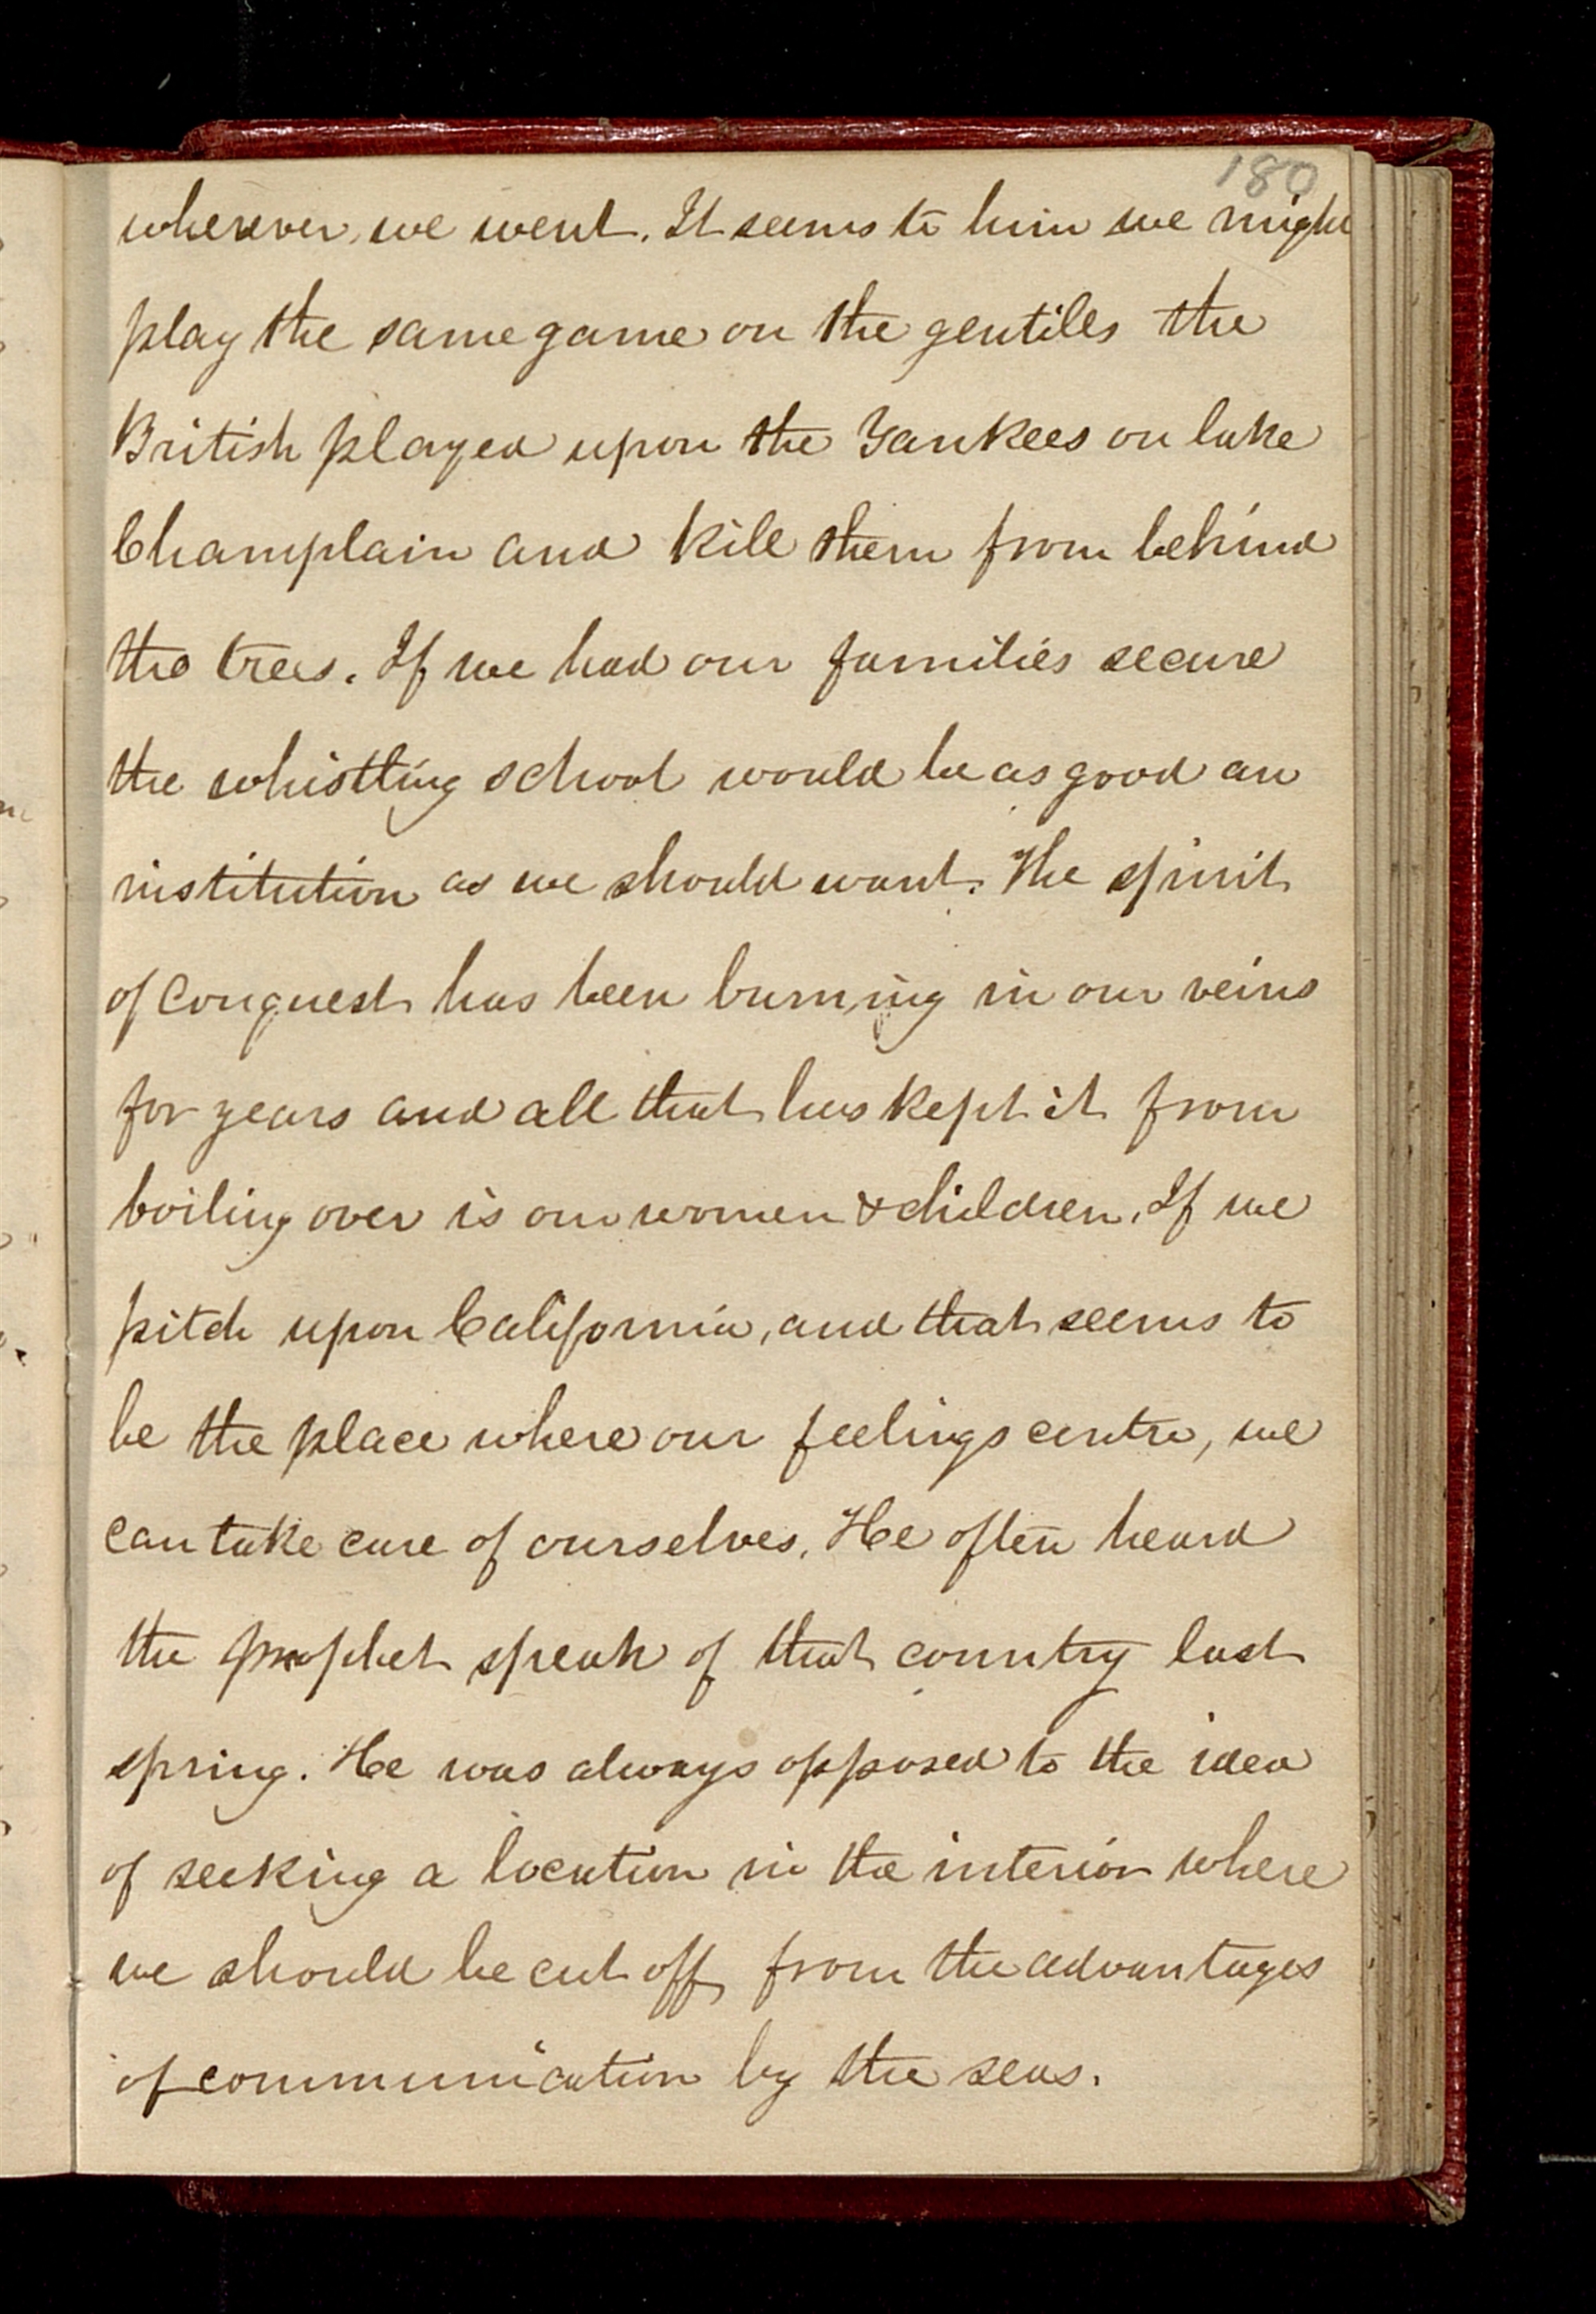 180
wherever we went. It seems to him we might
play the same game on the gentiles the
British played upon the Yankees on lake
Champlain and kill them from behind
the trees. If we had our families secure
the whistling school would be as good an
institution as we should want. The spirit
of conquest has been burning in our veins
for years and all that has kept it from
boiling over is our women & children. If we
pitch upon California, and that seems to
be the place where our feelings centre, we
can take care of ourselves. He often heard
the prophet speak of that country last
spring. He was always opposed to the idea
of seeking a location in the interior where
we should be cut off from the advantages
of communication by the seas.